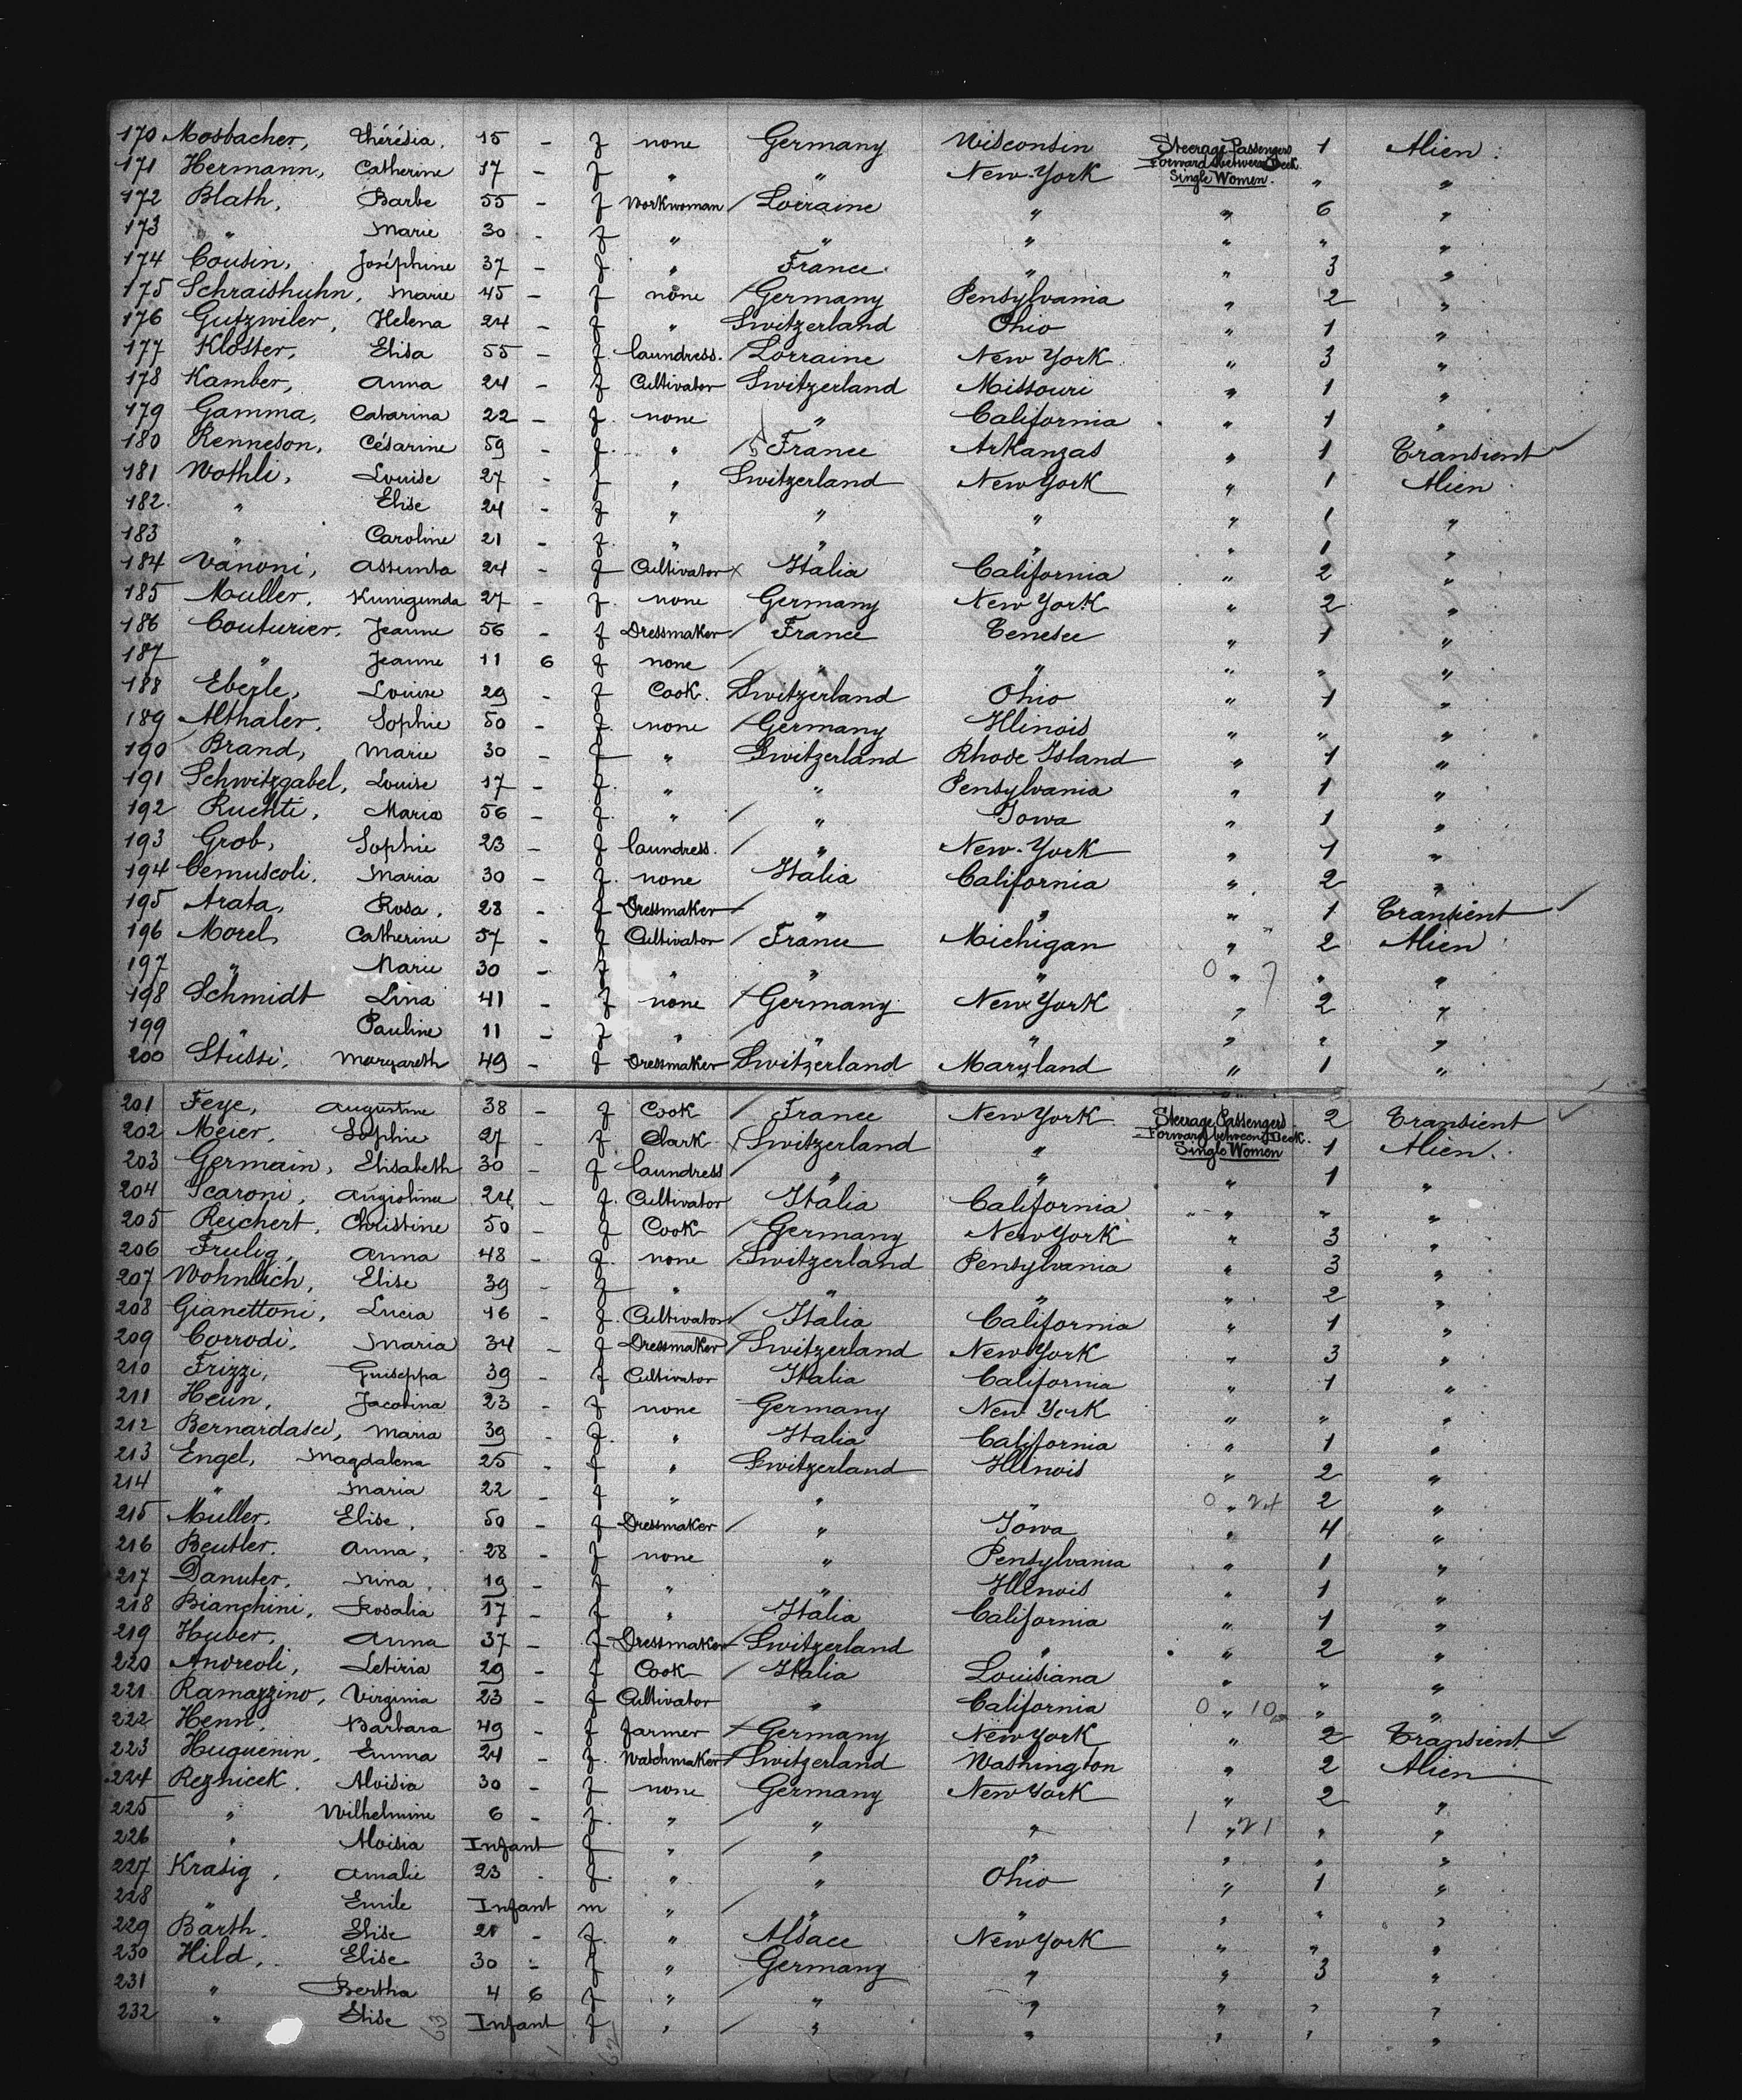 170 Mosbacher, Thérésia. 15 - f none Germany Wisconsin Steerage Passengers Forward between Deck. Single Women. 1 Alien
171 Hermann, Catherine 17 - f " " New-York " " "
172 Blath, Barbe 55 - f Workwoman / Lorraine " " 6 "
173 " Marie 30 - f " " " " " "
174 Cousin, Joséphine 37 - f " France " " 3 "
175 Schraishuhn, Marie 45 - f none / Germany Pensylvania " 2 "
176 Gutzwiler, Helena 24 - f " Switzerland Ohio " 1 "
177 Kloster, Elisa 55 - f laundress. / Lorraine New York " 3 "
178 Kamber, Anna 24 - f Cultivator Switzerland Missouri " 1 "
179 Gamma, Catarina 22 - f. none " California " 1 "
180 Renneson, Césarine 59 - f. " / France Arkanzas " 1 Transient ✓
181 Wothli, Louise 27 - f " Switzerland New York " 1 Alien
182. " Elise 24 - f " " " " 1 "
183 " Caroline 21 - f. " " " " 1 "
184 Vanoni, Assunta 24 - f Cultivator x Italia California " 2 "
185 Muller, Kunigunda 27 - f. none Germany New York " 2 "
186 Couturier, Jeanne 56 - f Dressmaker / France Tenesee " 1 "
187 " Jeanne 11 6 f none / " " " " "
188 Eberle, Louise 29 - f Cook. / Switzerland Ohio " 1 "
189 Althaler, Sophie 50 - f. none / Germany Illinois " " "
190 Brand, Marie 30 - f " Switzerland Rhode Island " 1 "
191 Schwitzgabel, Louise 17 - f. " " Pensylvania " 1 "
192 Ruchti, Maria 56 - f. " / " Iowa " 1 "
193 Grob, Sophie 23 - f laundress. / " New-York " 1 "
194 Cemuscoli, Maria 30 - f. none Italia California " 2 "
195 Arata, Rosa, 28 - f Dressmaker / " " " 1 Transient ✓
196 Morel, Catherine 57 - f Cultivator / France Michigan " 2 Alien
197 " Marie 30 - f " " " 0 " 7 " "
198 Schmidt Lina 41 - f none / Germany New York " 2 "
199 " Pauline 11 - f " / " " " " "
200 Stüssi, Margareth 49 - f Dressmaker Switzerland Maryland " 1 "
201 Feye, Augustine 38 - f Cook / France New York Steerage Passengers Forward between Deck. Single Women 2 Transient ✓
202 Meier, Sophie 27 - f Clark x Switzerland " 1 Alien.
203 Germain, Elisabeth 30 - f laundress / " " " 1 "
204 Scaroni, Angiolina 24 - f. Cultivator Italia California " " "
205 Reichert, Christine 50 - f Cook / Germany New York " 3 "
206 Frulig, Anna 48 - f. none / Switzerland Pensylvania " 3 "
207 Wohnlich, Elise 39 - f " " " " 2 "
208 Gianettoni, Lucia 16 - f. Cultivator / Italia California " 1 "
209 Corrodi, Maria 34 - f Dressmaker / Switzerland New York " 3 "
210 Frizzi, Guiseppa 39 - f Cultivator Italia California " 1 "
211 Heun, Jacobina 23 - f none Germany New York " " "
212 Bernardasci, Maria 39 - f. " Italia California " 1 "
213 Engel, Magdalena 25 - f " Switzerland Illinois " 2 "
214 " Maria 22 - f " " " 0 " 24 2 "
215 Muller, Elise, 50 - f Dressmaker / " Iowa " 4 "
216 Beutler. Anna, 28 - f none " Pensylvania " 1 "
217 Danuter, Nina, 19 - f " " Illinois " 1 "
218 Bianchini, Rosalia 17 - f " Italia California " 1 "
219 Huber, Anna 37 - f Dressmaker Switzerland " " 2 "
220 Andreoli, Letizia 29 - f Cook / Italia Louisiana " " "
221 Ramazzino, Virginia 23 - f Cultivator " California 0 " 10 " "
222 Henn, Barbara 49 - f farmer / Germany New York " 2 Transient ✓
223 Huguenin, Emma 24 - f. Watchmaker Switzerland Washington " 2 Alien
224 Reznicek. Aloisia 30 - f none Germany New York " 2 "
225 " Wilhelmine 6 - f. " / " " 1 " 21 " "
226 " Aloisia Infant f " / " " " " "
227 Krasig, Amalie 23 . f. " " Ohio " 1 "
228 " Emile Infant m " / " " " " "
229 Barth. Elise 21 - f. " Alsace New York " " "
230 Hild, Elise 30 - f " Germany " " 3 "
231 " Bertha 4 6 f " / " " " " "
232 " Elise Infant f " / " " " " "
63 62